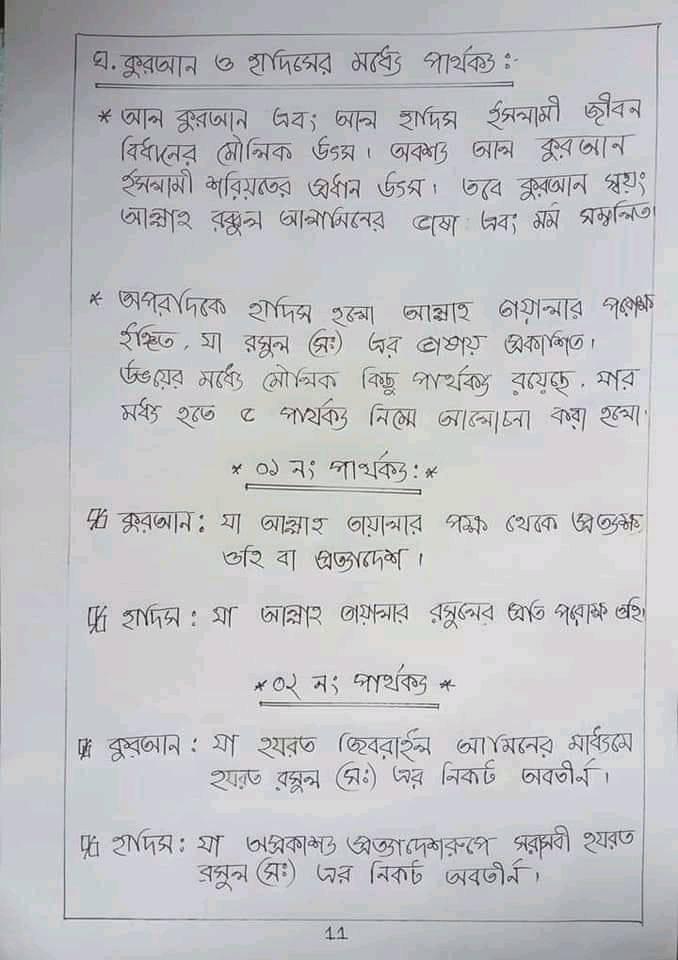 ঘ. কুরআন ও হাদিসের মধ্যে পার্থক্য:-
* আল কুরআন এবং আল হাদিস ইসলামী জীবন
বিধানের মৌলিক উৎস। অবশ্য আল কুরআন
ইসলামী শরিয়তের প্রধান উৎস। তবে কুরআন স্বয়ং
আল্লাহ রব্বুল আলামিনের ভাষা এবং মর্ম সম্বলিত।
* অপরদিকে হাদিস হলো আল্লাহ তায়ালার পরোক্ষ
ইঙ্গিত, যা রসুল (সঃ) এর ভাষায় প্রকাশিত।
উভয়ের মধ্যে মৌলিক কিছু পার্থক্য রয়েছে, যার
মধ্য হতে ৫ পার্থক্য নিম্নে আলোচনা করা হলো।
* ০১ নং পার্থক্য: *
কুরআন: যা আল্লাহ তায়ালার পক্ষ থেকে প্রত্যক্ষ
ওহি বা প্রত্যাদেশ।
হাদিস: যা আল্লাহ তায়ালার রসুলের প্রতি পরোক্ষ ওহি।
* ০২ নং পার্থক্য *
কুরআন: যা হযরত জিবরাইল আমিনের মাধ্যমে
হযরত রসুল (সঃ) এর নিকট অবতীর্ন।
হাদিস: যা অপ্রকাশ্য প্রত্যাদেশরুপে সরাসরী হযরত
রসুল (সঃ) এর নিকট অবতীর্ন।
11